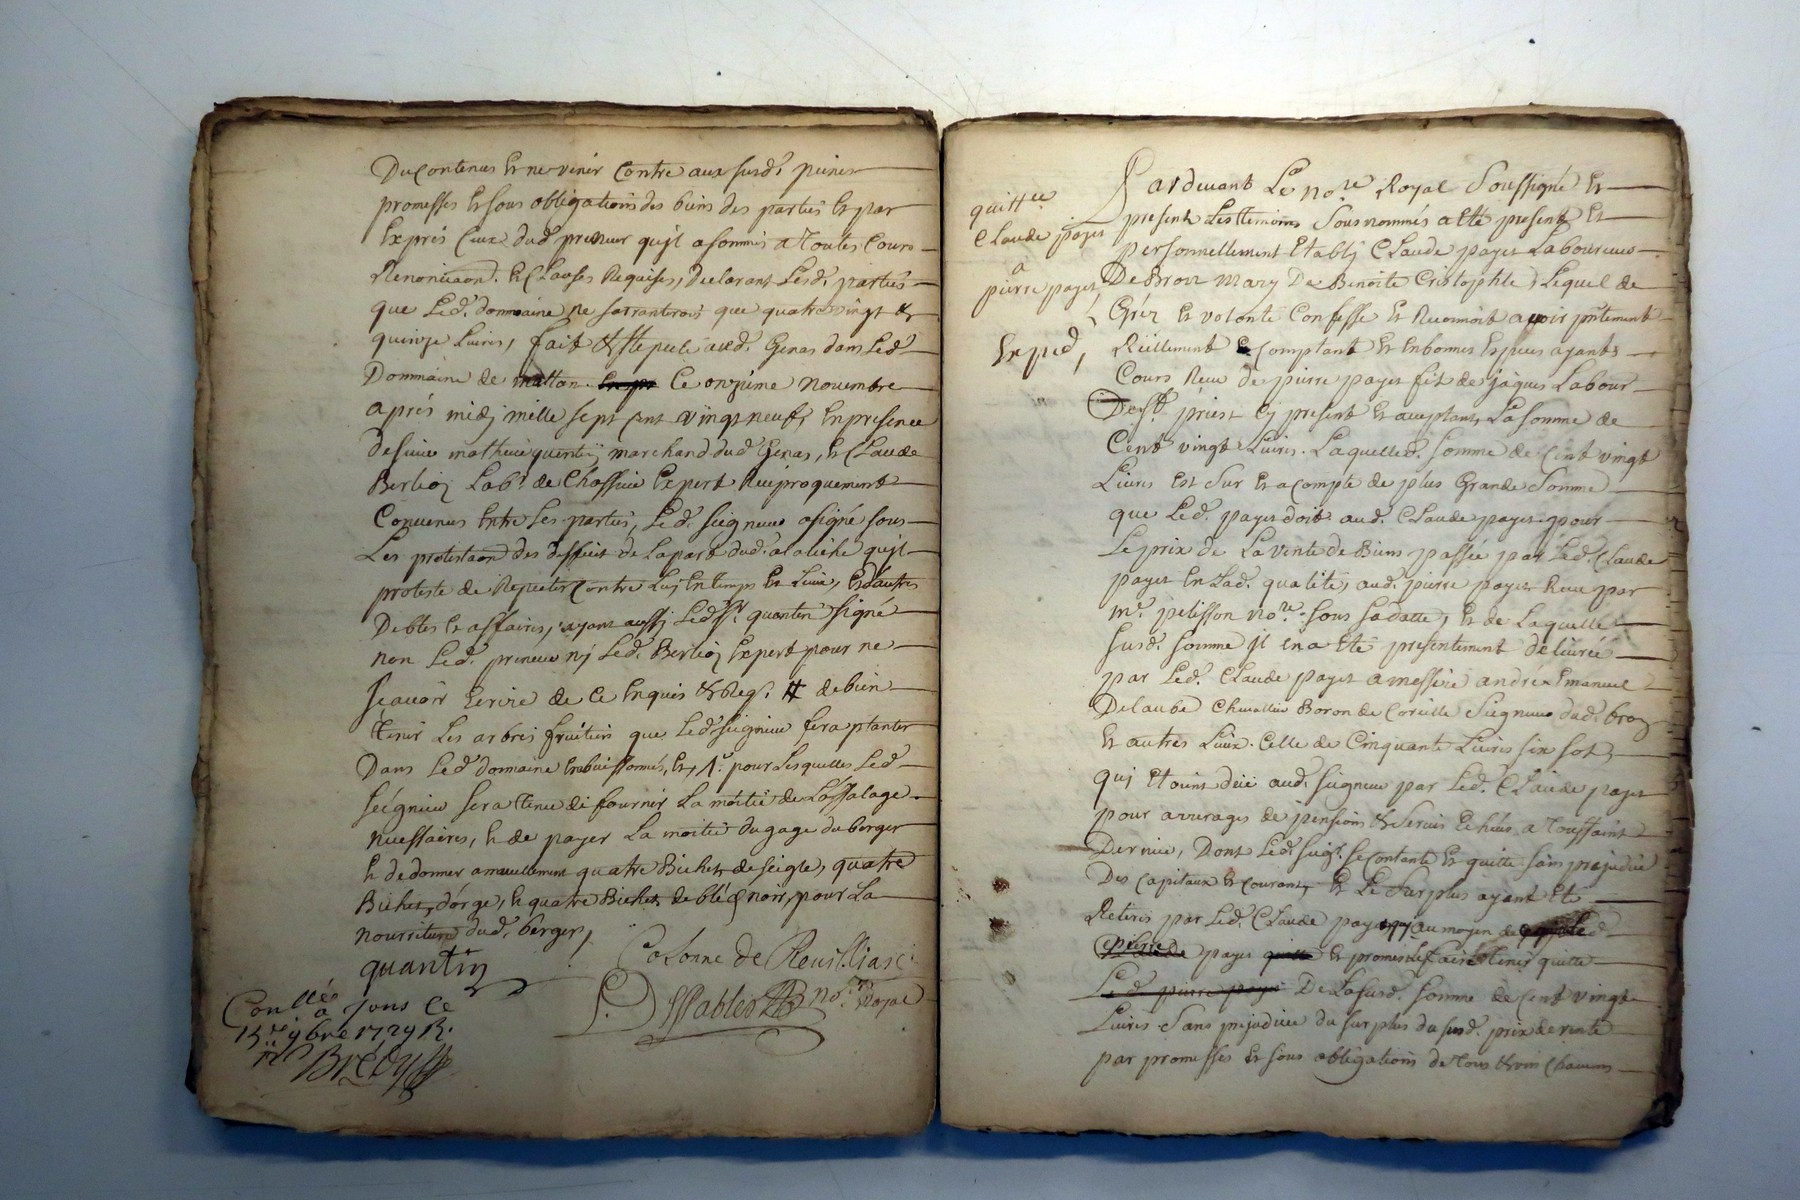 Du contenus et ne venir contre aux susd. peines
promesses et sous obligations des biens des parties et par
Exprés Ceux dud. preneur qu'il a soumis a toutes Cours
Renontiaon. et Clauses Requises, declarant Lesd. parties
que Led. dommaine ne s'arranterois que quatre vingt &
quinze Livres, fait & stipulé aud. Genas dans Led.
Dommaine de matton Ce onzieme novembre
aprés midj mille sept cent vingt neuf, En presence
de sieur mathieu quentin marchand dud Genas, et Claude
Berlioz Labr. de Chassieu Expert Réciproquement
Convenus Entre Les parties, Led. seigneur a signé sous
Les protestaon des deffices de La part dud. qu'il
proteste de Repeter Contre Luj En temps et Lieu, et d'autres
Debtes et affaires, ayant aussj Led. Sr. quantin signé
non Led. preneur nj Led. Berlioz Expert pour ne
sçavoir Ecrire de Ce Enquis & Req. # de bien
tenir Les arbres fruitiers que Led. seigneur fera planter
Dans Led. dommaine pour Lesquelles Led.
seigneur sera tenu de fournir La moitié de
necessaires, et de payer La moitié du gage du berger
et de donner annuellement quatre Bichets de seigle, quatre
Bichets d'orge, et quatre Bichets de blé noir, pour La
nourriture dud. berger,
quantin
Colonne de
nore. Royal
Conllé a
ce
9bre 1729 R.
quittce
Claude payet
a
pierre payet
Exped,
Pardevant Le nore. Royal Soussigné Et
present Les temoins Sousnommés a Eté present Et
personnellement Etablj Claude payet Laboureur
De Bron mary De Benoite Cristophle Lequel de
Gréz et volonté Confesse et Reconnoit avoir pntement
Réellement Comptant et En bonnes Especes ayants
Cours Receu de pierre payet fils de jaques Labour
De St. priest Cj present et acceptant, La somme de
Cent vingt Livres. Laquelled. somme de Cent vingt
Livres Est Sur Et a Compte de plus Grande Somme
que Led. payet doit aud. Claude payet pour
Le prix de La vente de Biens passée par Led. Claude
payet En Lad. qualité, aud. pierre payet Receue par
me. pelisson nore. sous sa datte, Et de Laquelle
susd. somme il En a Eté presentement délivrée
par Led. Claude payet a messire andré Emanuel
Delaube Chevallier Baron de Seigneur dud. bron
Et autres Lieux. Celle de Cinquante Livres six sols
quj Etoient deüe aud. seigneur par Led. Claude payet
pour arrerages de pensions & servis Echeus a Toussaint
Dernier, Dont Led. seigr. se contente Et quitte sans prejudice
Des Capitaux et Courant, Et Le Surplus ayant Eté
Retirés par Led. Claude payet au moyen de Led.
pierre payet et promes Le faire tenir quitte
Led. pierre payet De La susd. somme de Cent vingt
Livres Sans prejudice du surplus du susd. prix de vente
par promesses et sous obligations de tous Chacuns